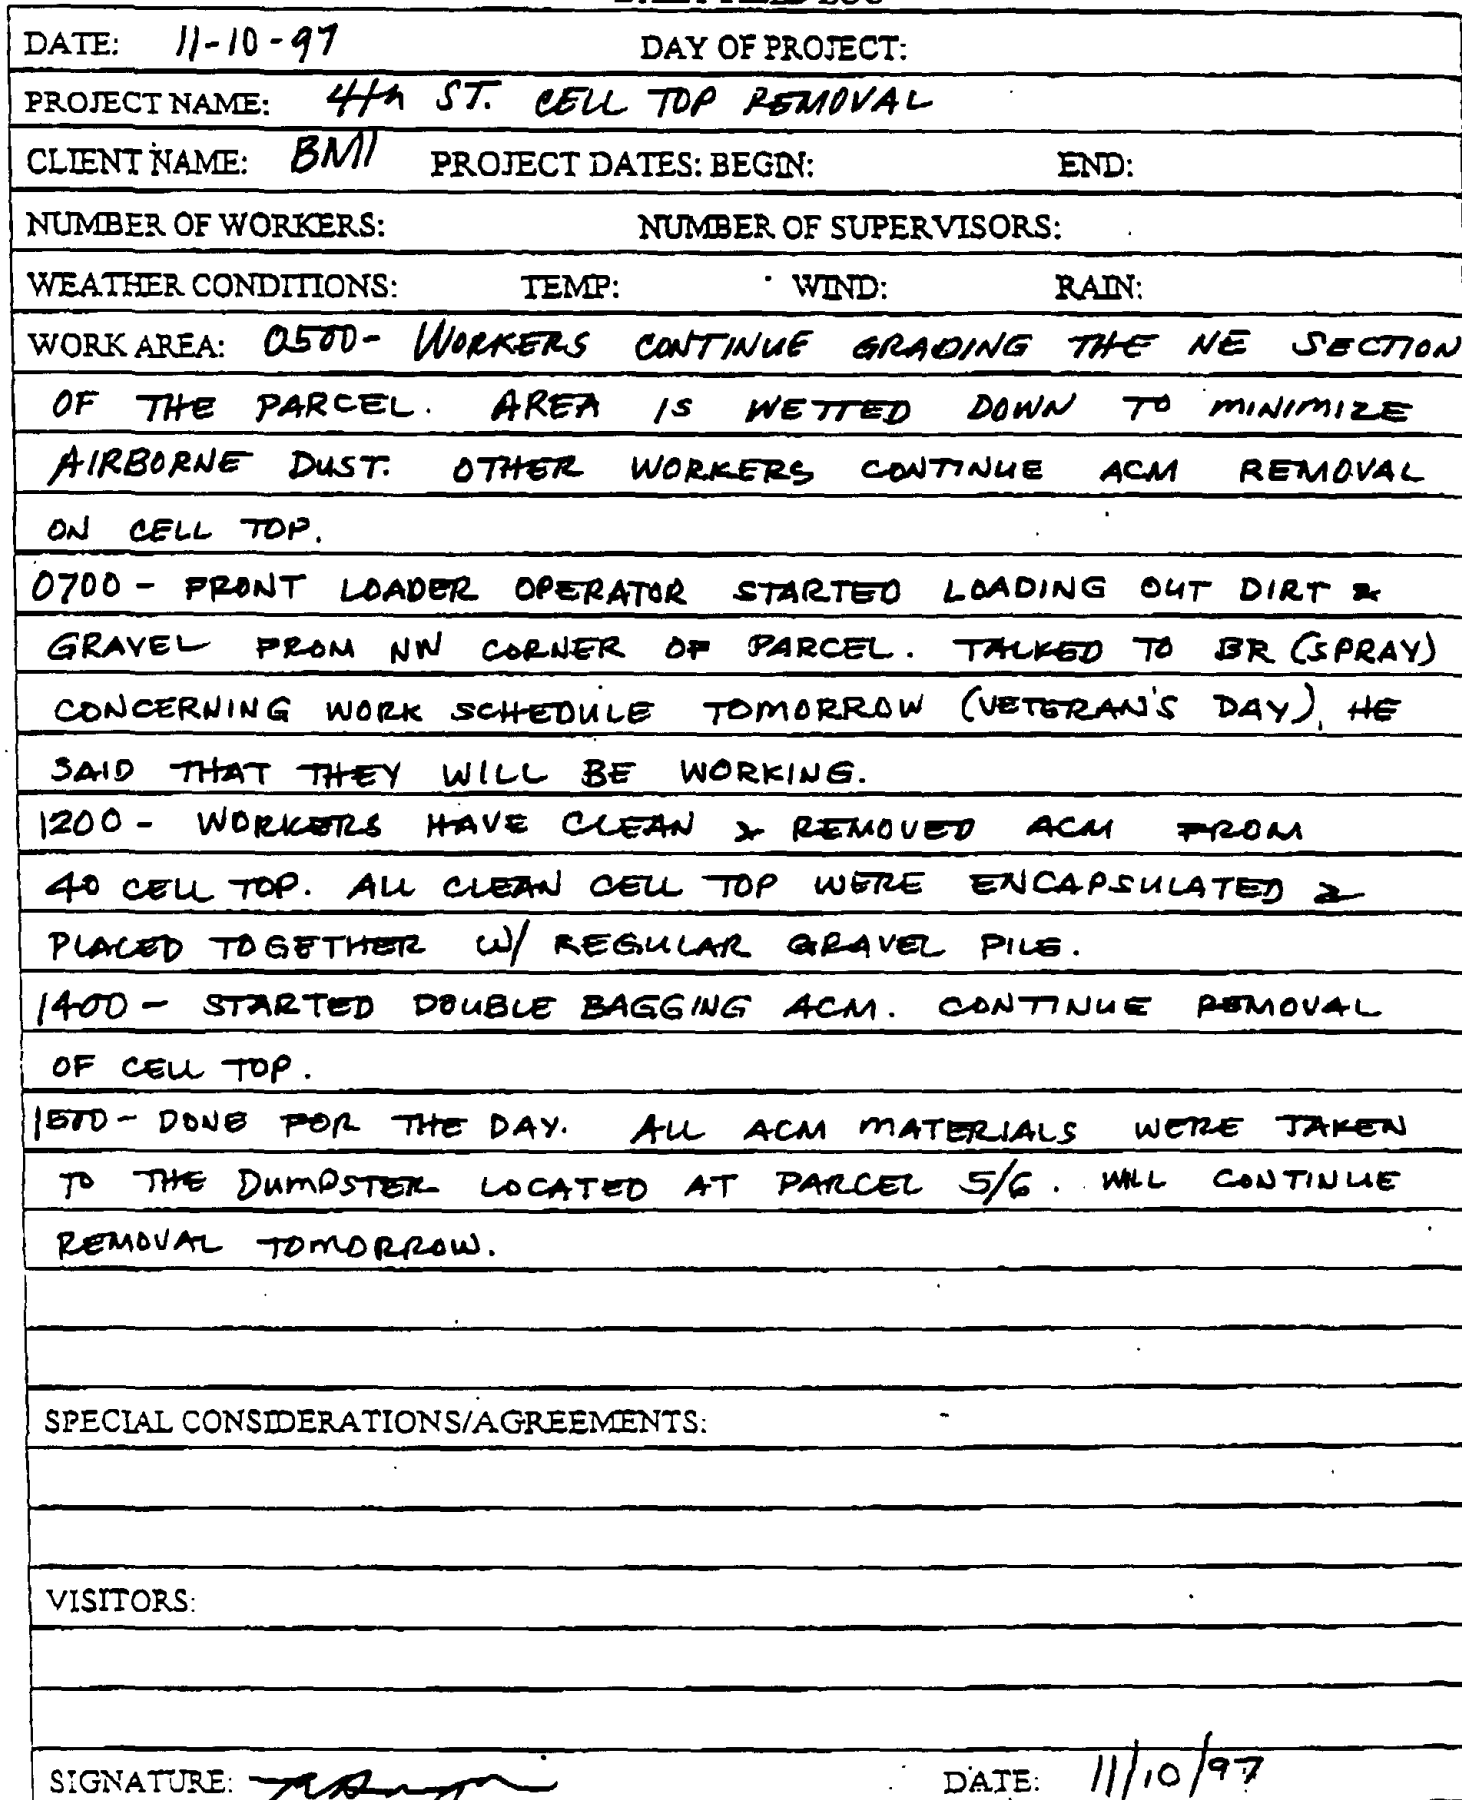 DATE: 11-10-97 DAY OF PROJECT:
PROJECT NAME: 4th ST. CELL TOP REMOVAL
CLIENT NAME: BMI PROJECT DATES: BEGIN: END:
NUMBER OF WORKERS: NUMBER OF SUPERVISORS:
WEATHER CONDITIONS: TEMP: WIND: RAIN:
WORK AREA: 0500- WORKERS CONTINUE GRADING THE NE SECTION
OF THE PARCEL. AREA IS WETTED DOWN TO MINIMIZE
AIRBORNE DUST. OTHER WORKERS CONTINUE ACM REMOVAL
ON CELL TOP.
0700 - FRONT LOADER OPERATOR STARTED LOADING OUT DIRT &
GRAVEL FROM NW CORNER OF PARCEL. TALKED TO BR (SPRAY)
CONCERNING WORK SCHEDULE TOMORROW (VETERAN'S DAY), HE
SAID THAT THEY WILL BE WORKING.
1200 - WORKERS HAVE CLEAN & REMOVED ACM FROM
40 CELL TOP. ALL CLEAN CELL TOP WERE ENCAPSULATED &
PLACED TOGETHER W/ REGULAR GRAVEL PILE.
1400 - STARTED DOUBLE BAGGING ACM. CONTINUE REMOVAL
OF CELL TOP.
1500 - DONE FOR THE DAY. ALL ACM MATERIALS WERE TAKEN
TO THE DUMPSTER LOCATED AT PARCEL 5/6. WILL CONTINUE
REMOVAL TOMORROW.
SPECIAL CONSIDERATIONS/AGREEMENTS:
VISITORS:
SIGNATURE: DATE: 11/10/97